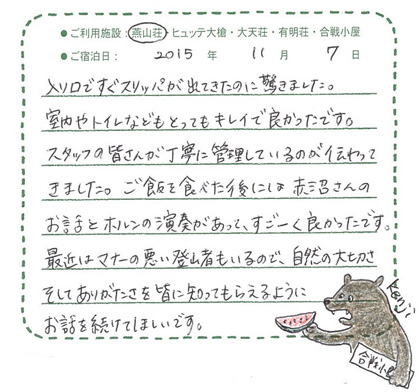 ●ご利用施設:燕山荘・ヒュッテ大槍・大天荘・有明荘・合戦小屋
●ご宿泊日: 2015 年 11 月 7 日
入り口ですぐスリッパが出てきたのに驚きました。
室内やトイレなどもとってもキレイで良かったです。
スタッフの皆さんが丁寧に管理しているのが伝わって
きました。ご飯を食べた後には赤沼さんの
お話とホルンの演奏があって、すごーく良かったです。
最近はマナーの悪い登山者もいるので、自然の大切さ
そしてありがたさを皆に知ってもらえるように
お話を続けてほしいです。
Kenji
合戦小屋